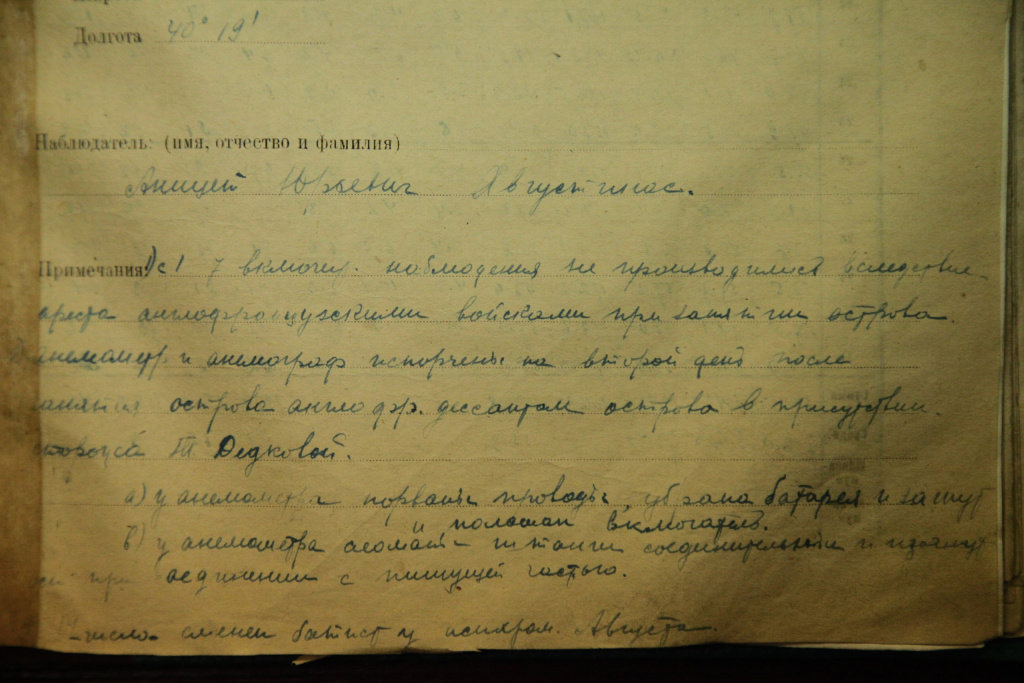 Долгота 40° 19'
Наблюдатель: (имя, отчество и фамилия)
Юрьевич Августинас.
Примечания: 1) с 1 7 включит. наблюдения не производились вследствие
ареста англофранцузскими войсками при занятии острова.
анемометр и анемограф испорчены на второй день после
занятия острова англофр. дессантом острова в присутствии
Т Дедковой.
а) у анемометра порваны провода, убрана батарея и
и поломан включатель.
в) у анемометра сломаны штанги соединительные и
при соединении с пишущей частью.
число сменен батист у психром. Августа.